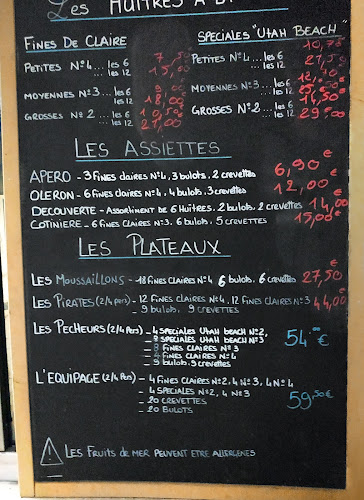 LES HUÎTRES A
FINES DE CLAIRE
SPECIALES "UTAH BEACH"
PETITES N°4 ... les 6 7,50
... les 12 15,00
PETITES N°4 ... les 6 10,70
... les 12 21,50
MOYENNES N°3 ... les 6 9,00
... les 12 18,00
MOYENNES N°3 ... les 6
... les 12
GROSSES N°2 ... les 6 10,50
les 12 21,00
GROSSES N°2 ... les 6 14,50
les 12 29,00
LES ASSIETTES
APERO - 3 FINES CLAIRES N°4, 3 bulots, 2 crevettes 6,90€
OLERON - 6 FINES CLAIRES N°4, 4 bulots, 3 crevettes 12,00€
DECOUVERTE - Assortiment de 6 Huîtres, 2 bulots, 2 crevettes 14,00
COTINIERE - 6 FINES CLAIRES N°3, 6 bulots, 5 crevettes 15,00€
LES PLATEAUX
LES MOUSSAILLONS - 18 FINES CLAIRES N°4 6 bulots, 6 crevettes 27,50€
LES PIRATES (2/4 pers) - 12 FINES CLAIRES N°4, 12 FINES CLAIRES N°3 44,00€
- 9 bulots, 9 crevettes
LES PECHEURS (2/4 pers) - 4 SPECIALES UTAH BEACH N°2,
- 8 SPECIALES UTAH BEACH N°3 54,00€
- 8 FINES CLAIRES N°3
- 4 FINES CLAIRES N°4
- 9 bulots, 9 crevettes
L'EQUIPAGE (2/4 Pers) - 4 FINES CLAIRES N°2, 4 N°3, 4 N°4
- 4 SPECIALES N°2, 4 N°3 59,50€
- 20 CREVETTES
- 20 BULOTS
LES FRUITS DE MER PEUVENT ETRE ALLERGENES